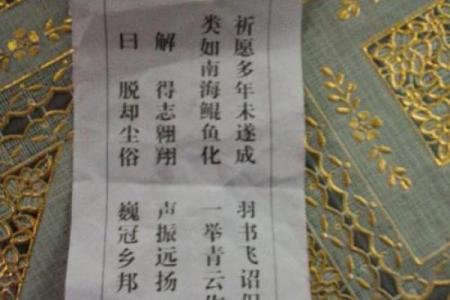 祈愿多年未遂成 羽书飞诏
类如南海鲲鱼化 一举青云
解 得志翱翔 声振远扬
曰 脱却尘俗 巍冠乡邦